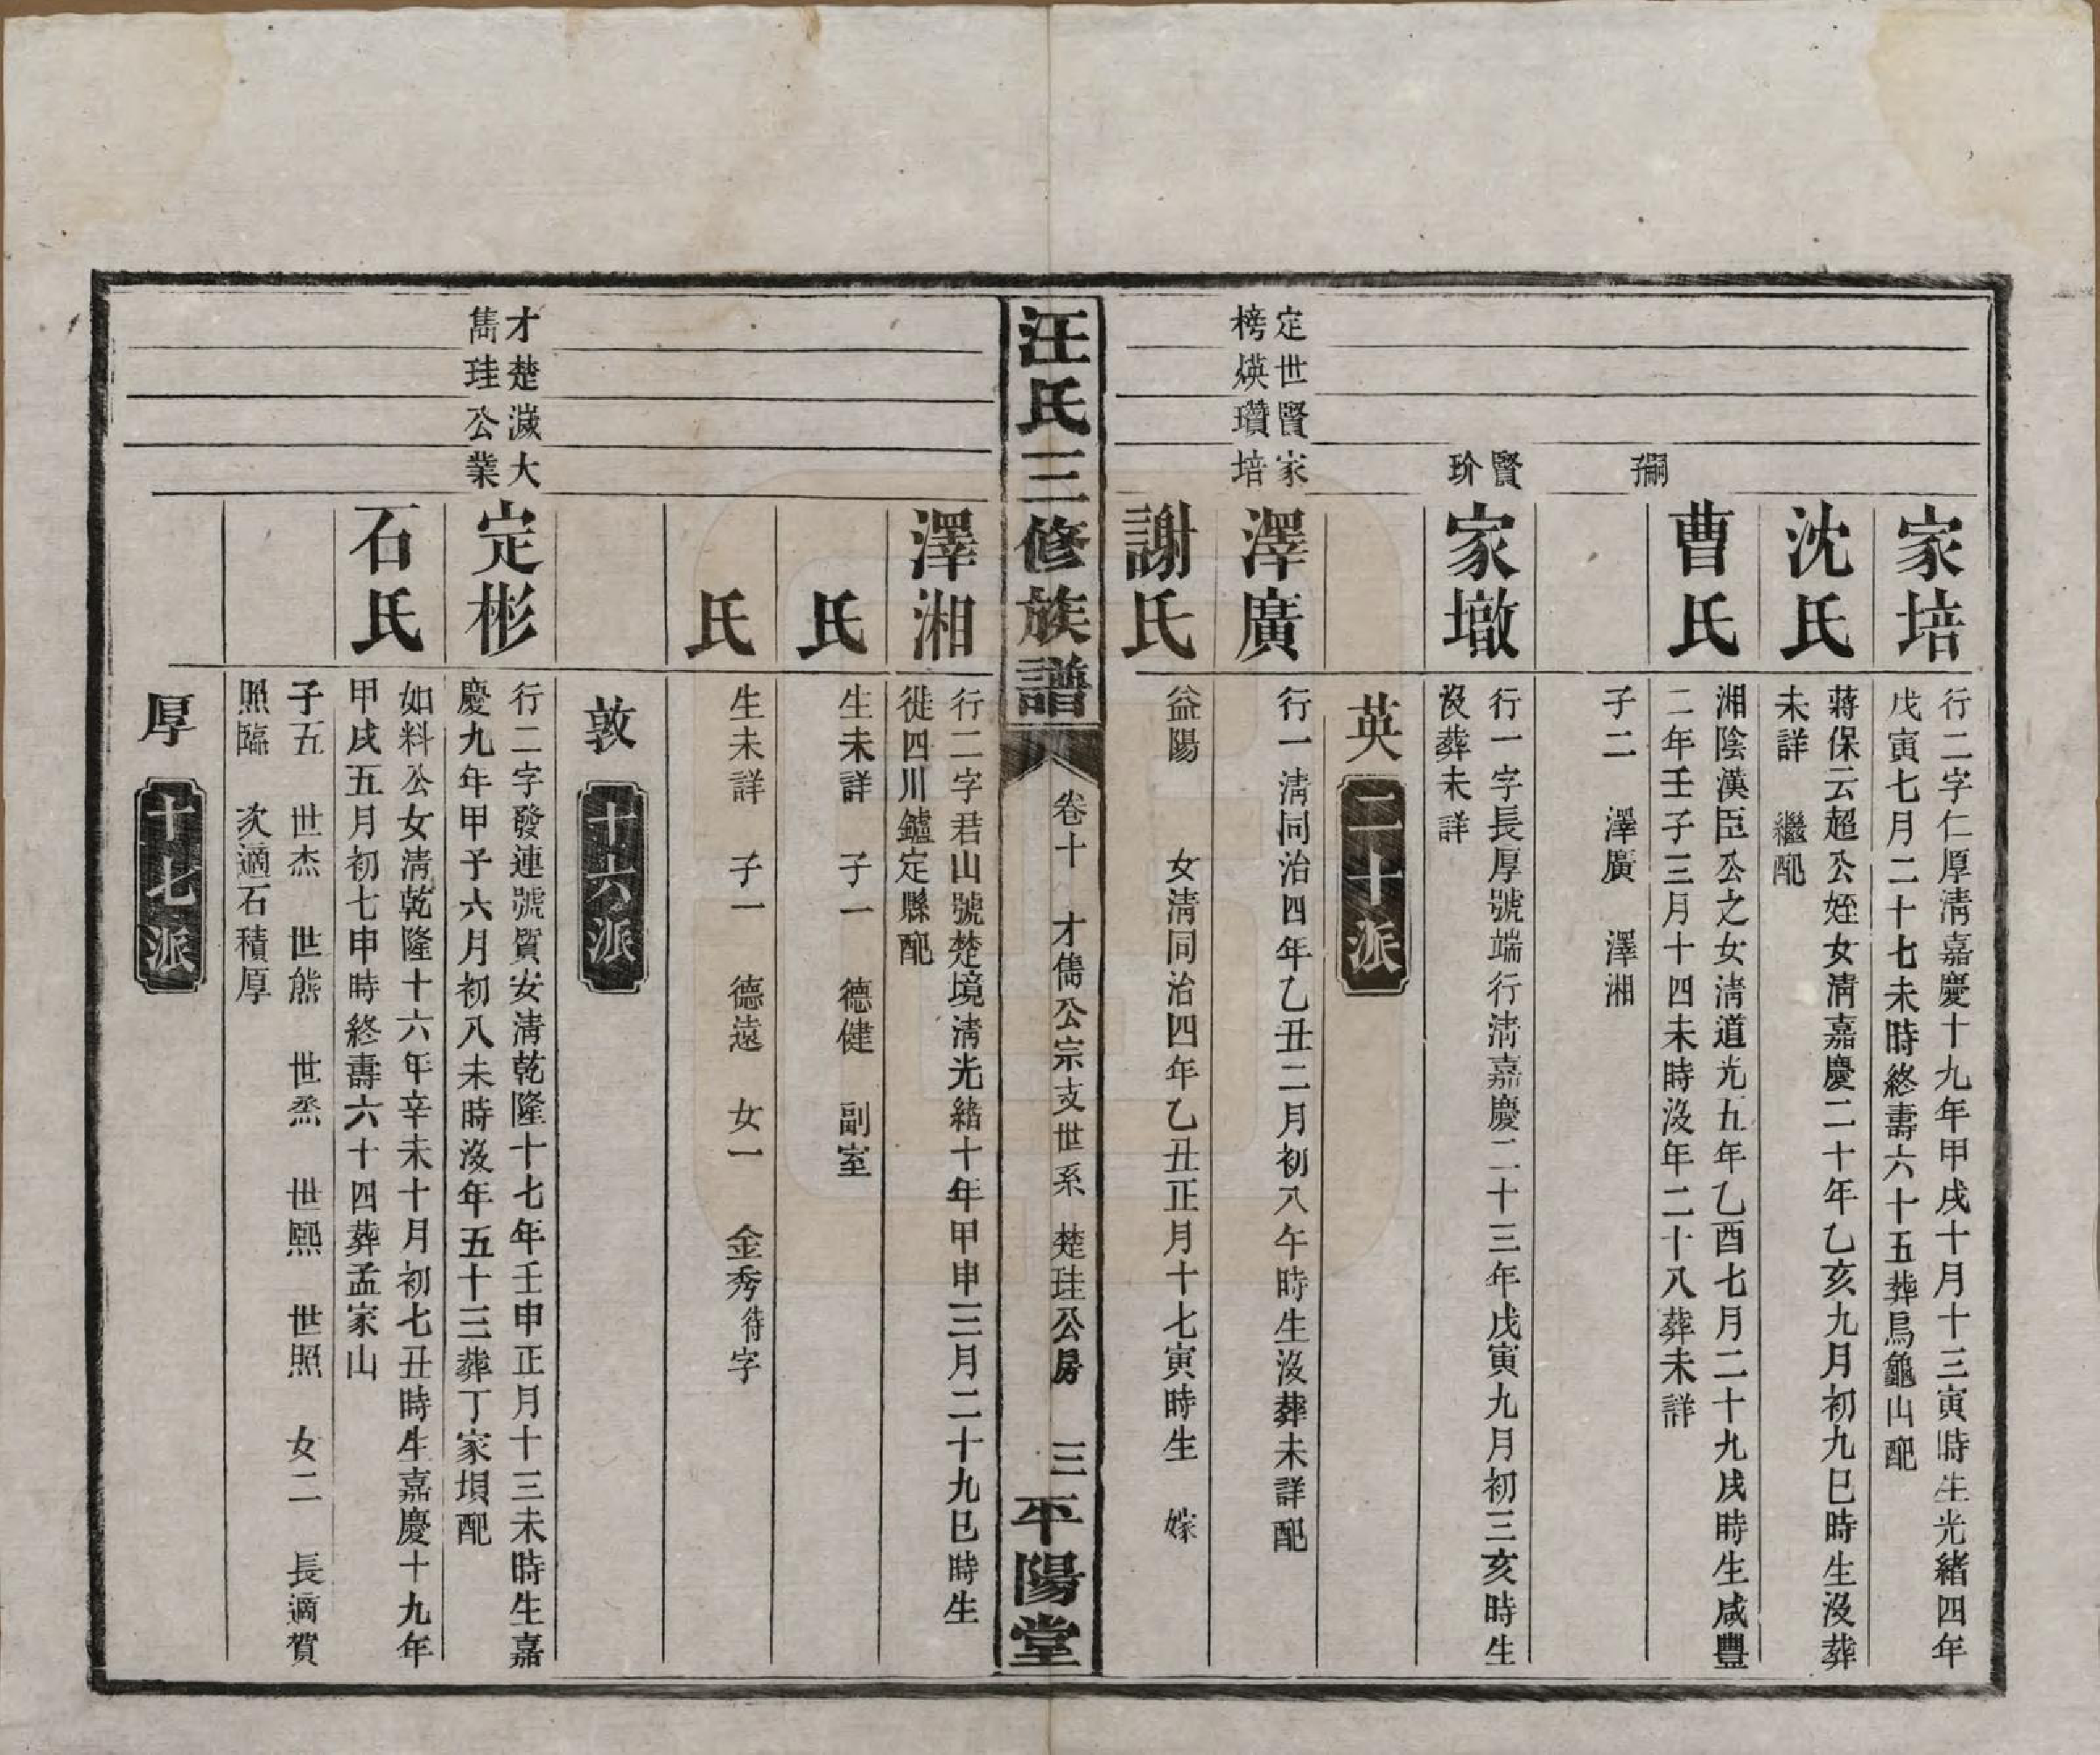 家培
行二字仁厚淸嘉慶十九年甲戌十月十三寅時生光緖四年
戊寅七月二十七未時終壽六十五葬烏龜山配
沈氏
蔣保云超公姪女淸嘉慶二十年乙亥九月初九巳時生沒葬
未詳　繼配
嗣子
曹氏
湘陰漢臣公之女淸道光五年乙酉七月二十九戌時生咸豐
二年壬子三月十四未時沒年二十八葬未詳
子二　澤廣　澤湘
賢玠
家墩
行一字長厚號端行淸嘉慶二十三年戊寅九月初三亥時生
沒葬未詳
英 二十派
定榜
世煐
賢瓚
家培
澤廣
行一淸同治四年乙丑二月初八午時生沒葬未詳配
謝氏
益陽　女淸同治四年乙丑正月十七寅時生　嫁
汪氏三修族譜
卷十　才儁公宗支世系　楚珪公房　三
平陽堂
澤湘
行二字君山號楚境淸光緖十年甲申三月二十九巳時生
徙四川鑪定縣配
氏
生未詳　子一　德健　副室
氏
生未詳　子一　德遠　女一　金秀待字
敦 十六派
才儁
楚珪
滅公
大業
定彬
行二字發連號質安淸乾隆十七年壬申正月十三未時生嘉
慶九年甲子六月初八未時沒年五十三葬丁家垻配
石氏
如料公女淸乾隆十六年辛未十月初七丑時生嘉慶十九年
甲戌五月初七申時終壽六十四葬孟家山
子五　世杰　世熊　世烝　世熙　世照　女二　長適賀
照臨　次適石積厚
厚 十七派